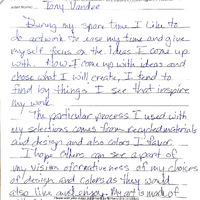 Artist Name: Tony Vandee
During my spare time I like to
do artwork to use my time and give
myself focus on the ideas I come up
with. How I come up with ideas and
chose what I will create, I tend to
find by things I see that inspire
my work.
The particular process I used with
my selections comes from recycled materials
and design and also colors I favor.
I hope others can see a part of
my vision of creativeness of my choices
of design and colors as they would
also like and enjoy. My art is made of